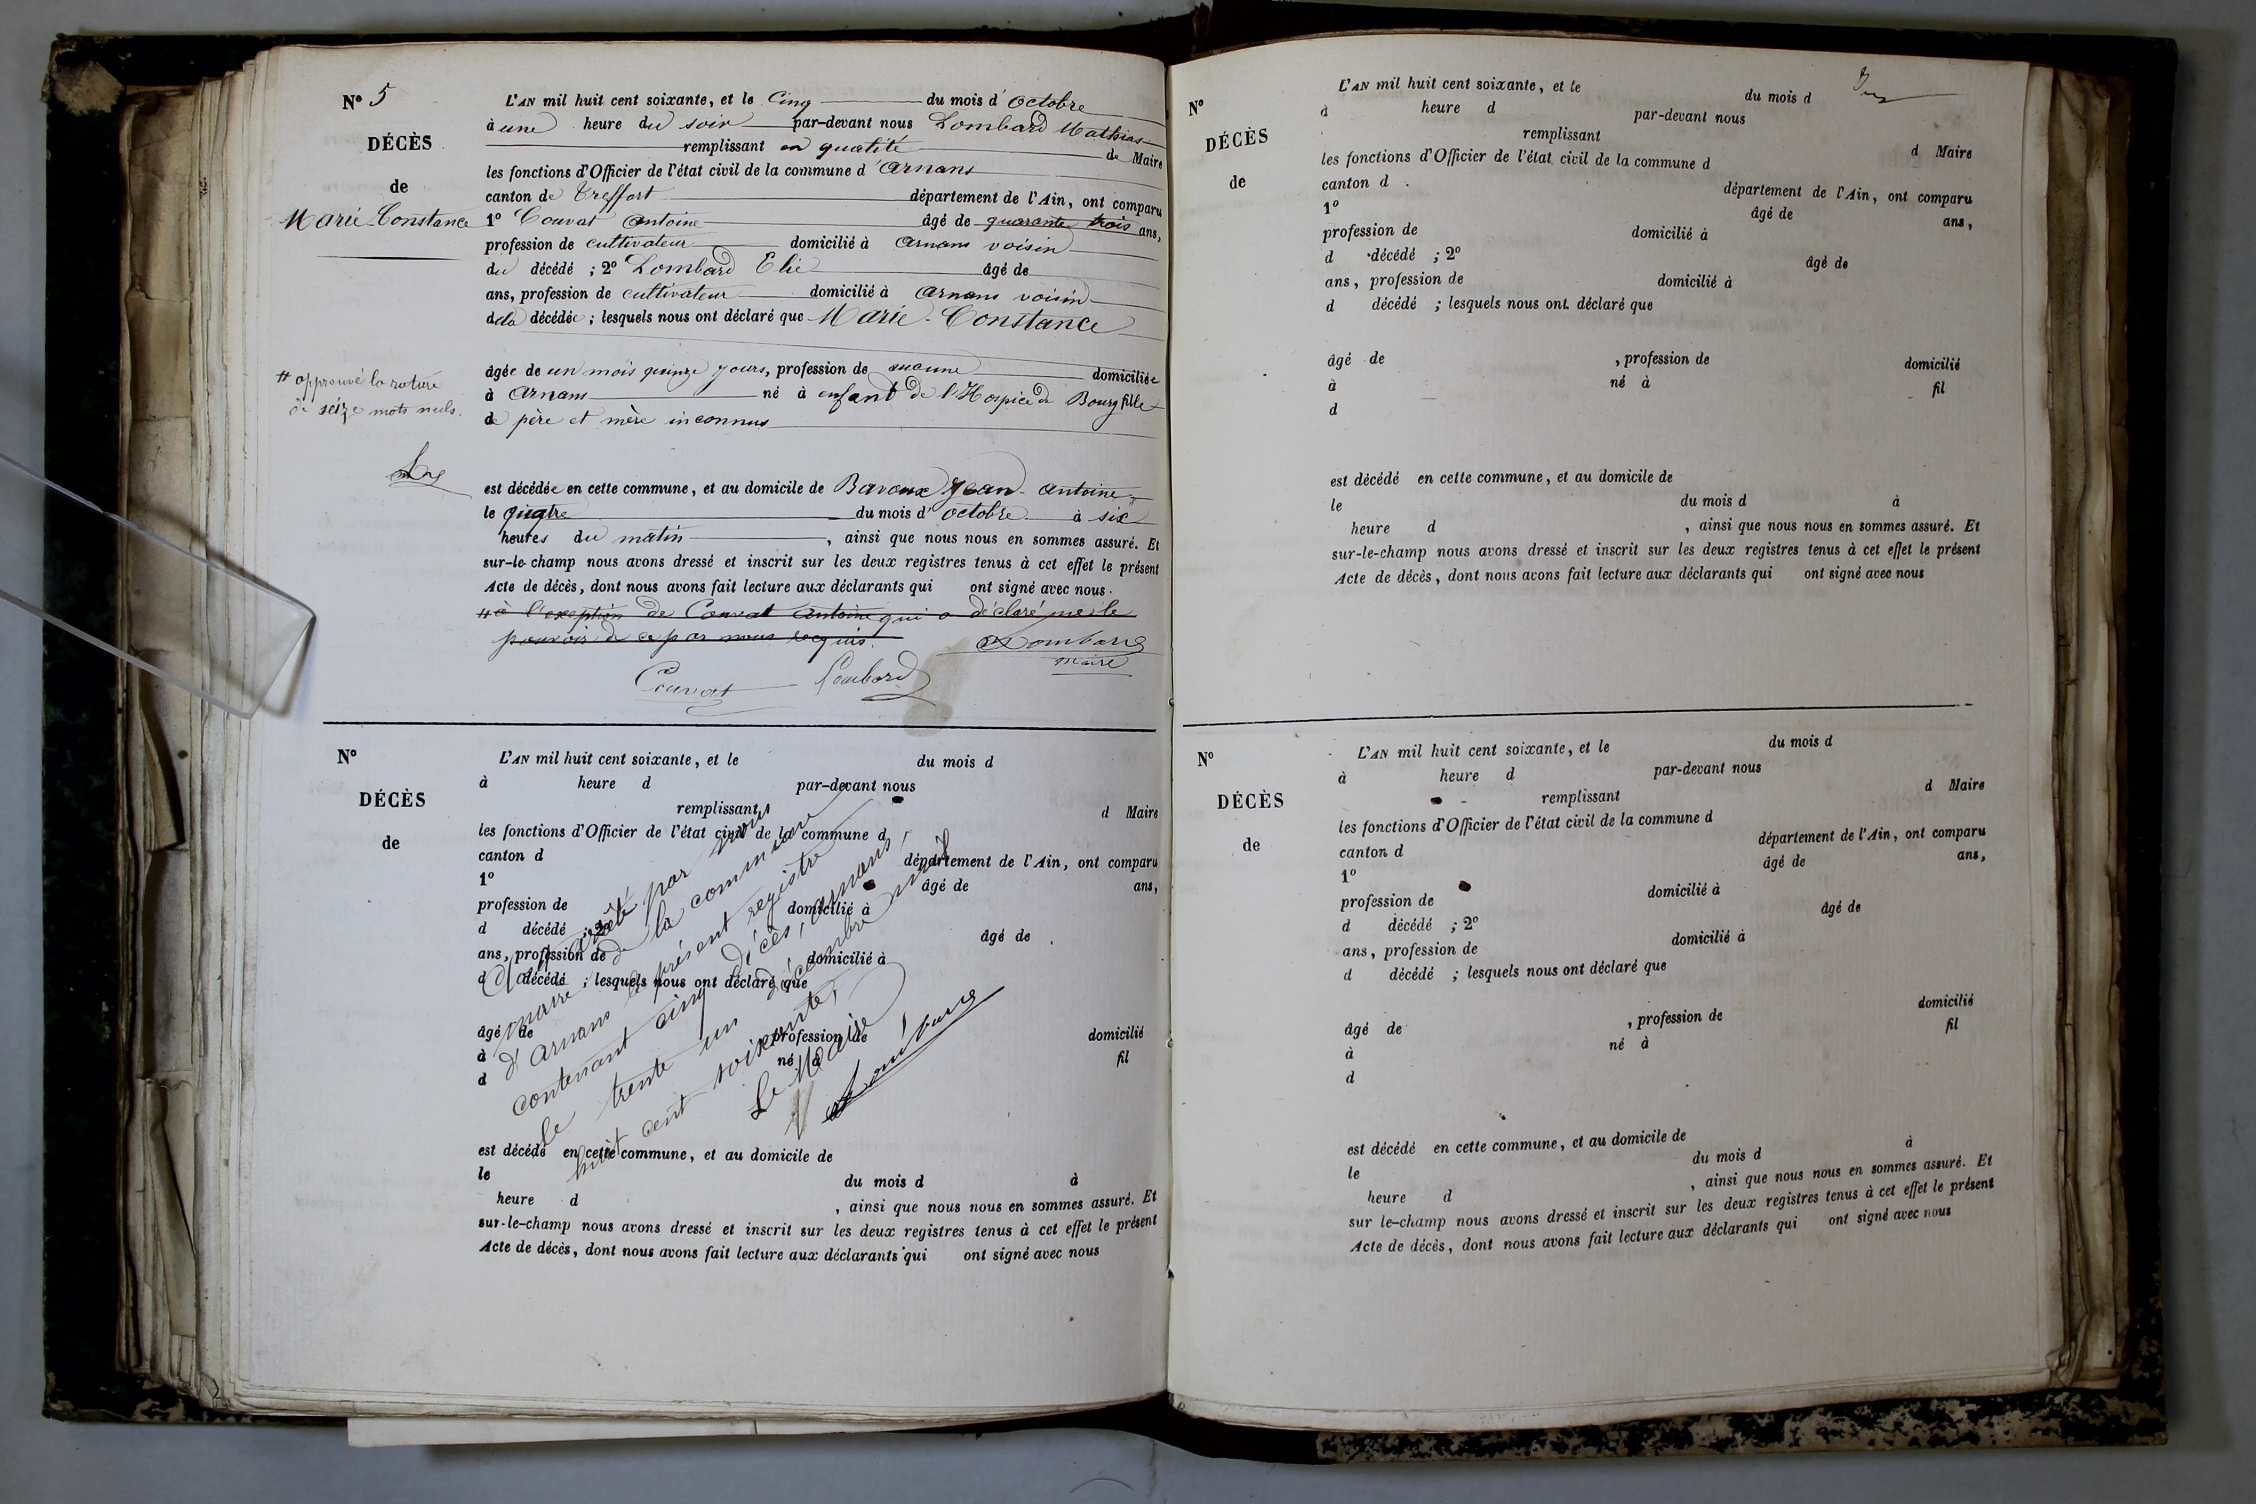 N° 5
DÉCÈS
de
Marie-Constance
# approuvé la rature
de seize mots nuls.
L'AN mil huit cent soixante, et le Cinq du mois d'octobre
à une heure du soir par-devant nous Lombard Mathias
remplissant en qualité de Maire
les fonctions d'Officier de l'état civil de la commune d'Arnans
canton de Treffort département de l'Ain, ont comparu
1° Couvat Antoine âgé de quarante trois ans,
profession de cultivateur domicilié à Arnans voisin
du décédé ; 2° Lombard Elie âgé de
ans, profession de cultivateur domicilié à Arnans voisin
de la décédée ; lesquels nous ont déclaré que Marie-Constance
âgée de un mois quinze jours, profession de aucune domiciliée
à Arnans né à enfant de l'Hospice de Bourg fille
de père et mère inconnus
est décédée en cette commune, et au domicile de Bavoux Jean-Antoine
le quatre du mois d'octobre à six
heures du matin, ainsi que nous nous en sommes assuré. Et
sur-le-champ nous avons dressé et inscrit sur les deux registres tenus à cet effet le présent
Acte de décès, dont nous avons fait lecture aux déclarants qui ont signé avec nous.
# à l'exeption de Couvat Antoine qui a déclaré ne le
pouvoir de ce par nous requis.
Lombard
maire
Couvat Lombard
N°
DÉCÈS
de
L'AN mil huit cent soixante, et le du mois d
à heure d par-devant nous
remplissant d Maire
les fonctions d'Officier de l'état civil de la commune d
canton d département de l'Ain, ont comparu
1° âgé de ans,
profession de domicilié à
d décédé ; 2° âgé de
ans, profession de domicilié à
d décédé ; lesquels nous ont déclaré que
âgé de , profession de domicilié
à né à fil
d
est décédé en cette commune, et au domicile de
le du mois d à
heure d , ainsi que nous nous en sommes assuré. Et
sur-le-champ nous avons dressé et inscrit sur les deux registres tenus à cet effet le présent
Acte de décès, dont nous avons fait lecture aux déclarants qui ont signé avec nous
arrêté par nous
maire de la commune
d'Arnans le présent registre
contenant cinq décès, Arnans,
le trente un décembre mil
huit cent soixante,
Le Maire
Lombard
N°
DÉCÈS
de
L'AN mil huit cent soixante, et le du mois d
à heure d par-devant nous
remplissant d Maire
les fonctions d'Officier de l'état civil de la commune d
canton d département de l'Ain, ont comparu
1° âgé de ans,
profession de domicilié à
d décédé ; 2° âgé de
ans, profession de domicilié à
d décédé ; lesquels nous ont déclaré que
âgé de , profession de domicilié
à né à fil
d
est décédé en cette commune, et au domicile de
le du mois d à
heure d , ainsi que nous nous en sommes assuré. Et
sur-le-champ nous avons dressé et inscrit sur les deux registres tenus à cet effet le présent
Acte de décès, dont nous avons fait lecture aux déclarants qui ont signé avec nous
N°
DÉCÈS
de
L'AN mil huit cent soixante, et le du mois d
à heure d par-devant nous
remplissant d Maire
les fonctions d'Officier de l'état civil de la commune d
canton d département de l'Ain, ont comparu
1° âgé de ans,
profession de domicilié à
d décédé ; 2° âgé de
ans, profession de domicilié à
d décédé ; lesquels nous ont déclaré que
âgé de , profession de domicilié
à né à fil
d
est décédé en cette commune, et au domicile de
le du mois d à
heure d , ainsi que nous nous en sommes assuré. Et
sur le-champ nous avons dressé et inscrit sur les deux registres tenus à cet effet le présent
Acte de décès, dont nous avons fait lecture aux déclarants qui ont signé avec nous